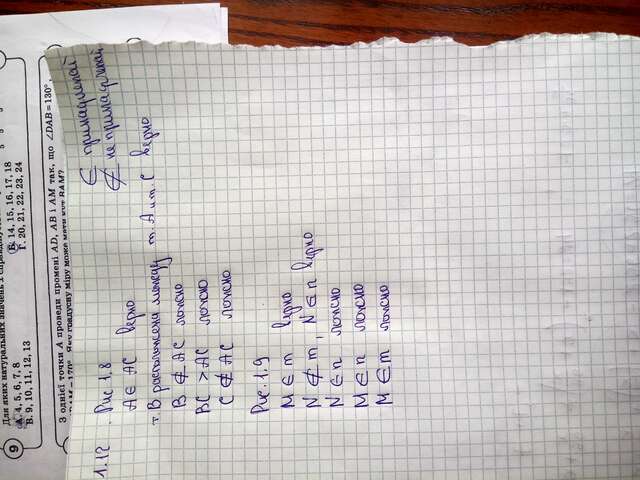 Для яких натуральних значень
9
А. 4, 5, 6, 7, 8
Б. 14, 15, 16, 17, 18
В. 9, 10, 11, 12, 13
Г. 20, 21, 22, 23, 24
З однієї точки A проведи промені AD, AB і AM так, що ∠DAB = 130°,
∈ принадлежай
∉ не принадлежай
1.12. Рис 1.8
A ∈ AC верно
т. B расположена между т. A и т. C верно
B ∉ AC ложно
BC > AC ложно
C ∉ AC ложно
Рис. 1.9
M ∈ m верно
N ∉ m, N ∈ n верно
N ∈ n ложно
M ∈ n ложно
M ∈ m ложно